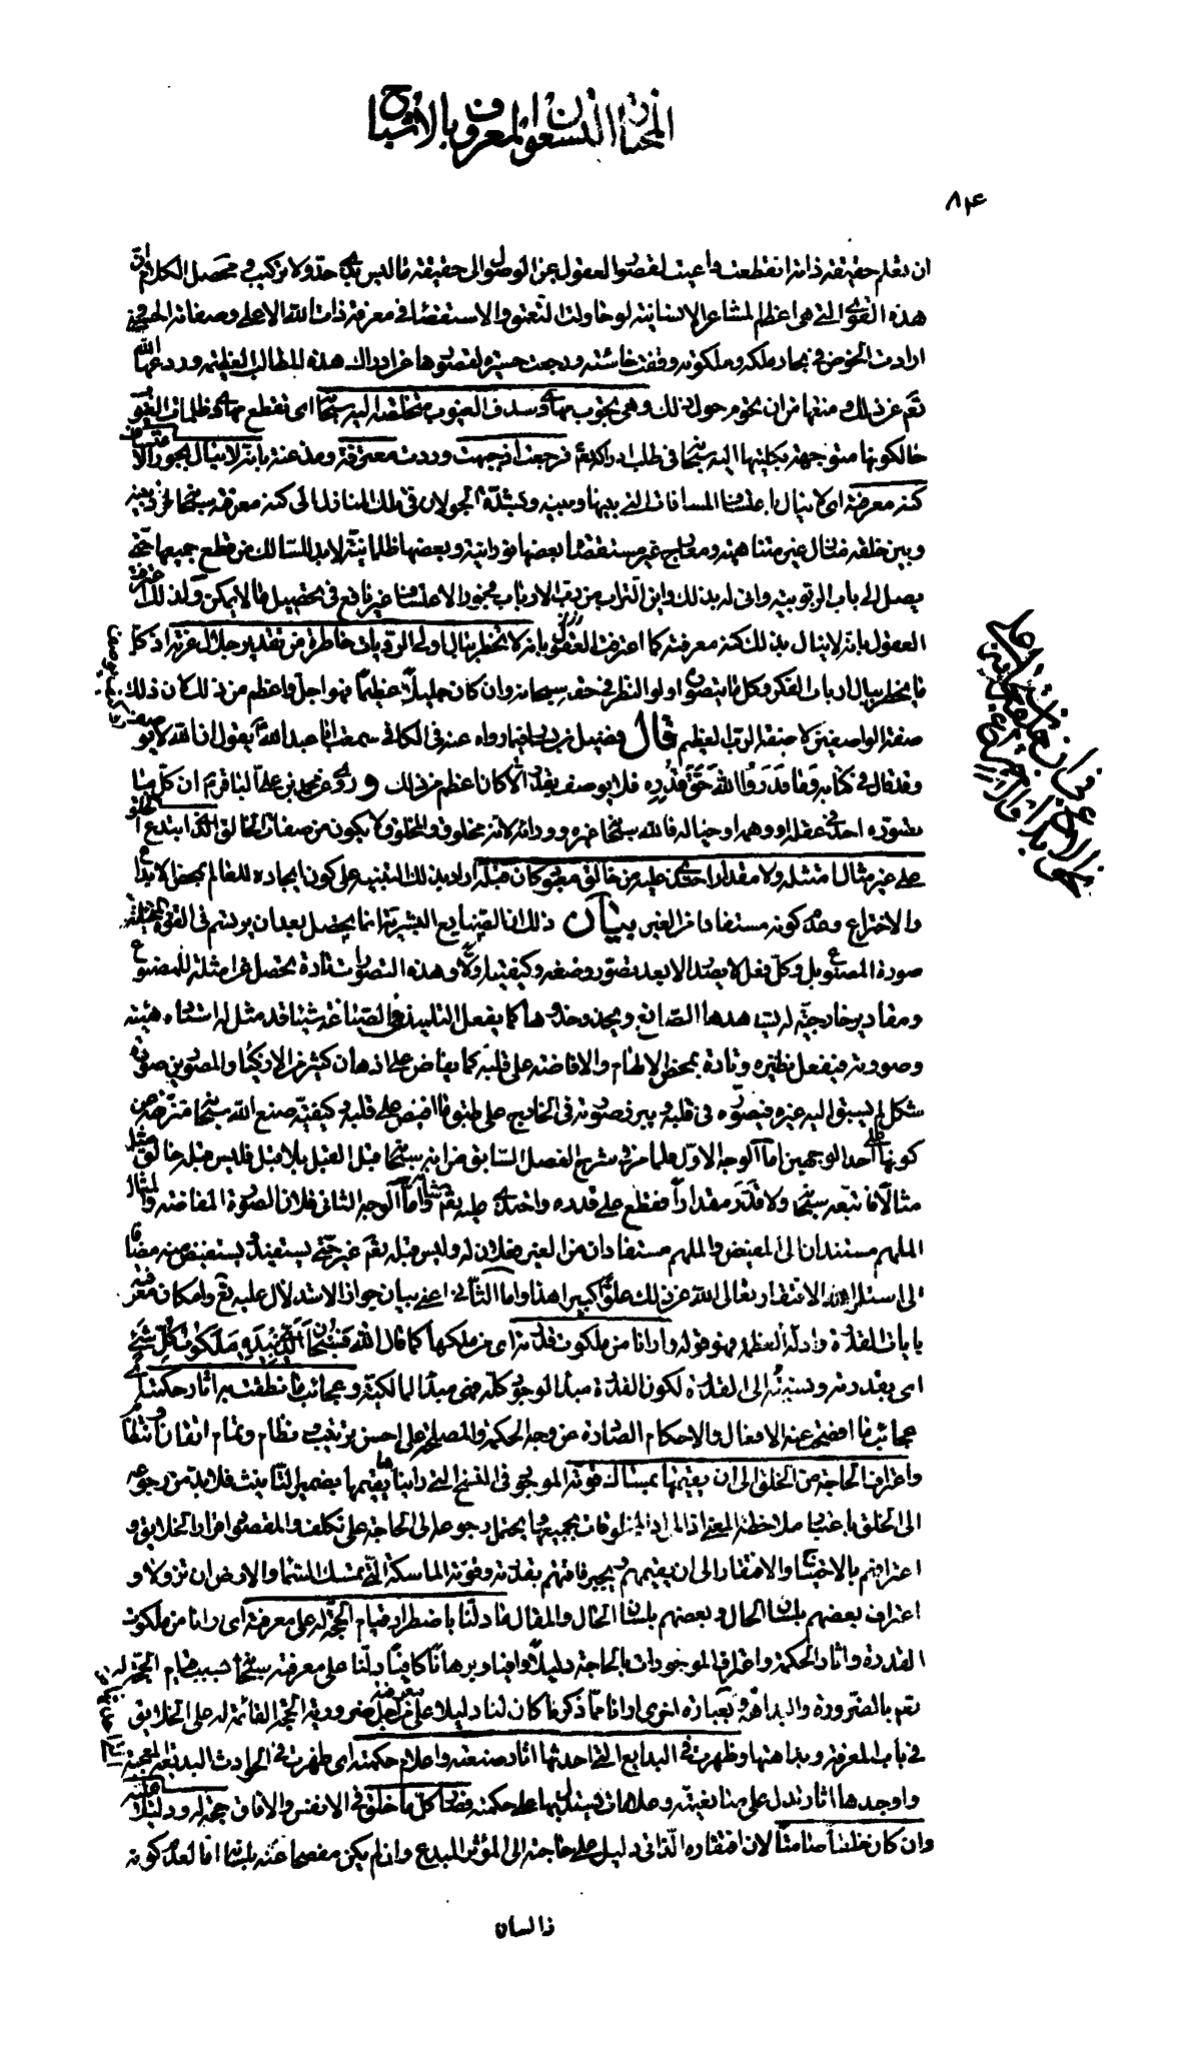 المختار التسعون المعروف بالاشباح
٨٤
ان تعلم حقيقة ذاته انقطعت واعيت لقصور العقول عن الوصول الى حقيقة ما ليس بذى حد ولا تركيب ومحصل الكلام ان
هذه القوى التى هى اعظم المشاعر الانسانية لو حاولت التعمق والاستقصاء فى معرفة ذات الله الاعلى وصفاته الحسنى
ارادت الخوض فى بحار ملكه وملكوته وقفت خاسئة ورجعت حسيرة لقصورها عن ادراك هذه المطالب العظيمة وردعها الله
تعم عن ذلك ومنعها من ان تحوم حول ذلك وهى تجوب مهاوى سدف الغيوب متخلصة اليه سبحانه اى تقطع مهاوى ظلمات الغيوب
حالكونها متوجهة بكليتها اليه سبحانه فى طلب ادراكه تعم فرجعت اذ جبهت وردت معترفة ومذعنة بانه لا ينال بجور الاعتساف
كنه معرفته اى لا ينال باعتساف المسافات التى بينها وبينه وبشدة الجولان فى تلك المنازل الى كنه معرفته سبحانه اذ بينه
وبين خلقه منازل غير متناهية ومعارج غير مستقصاة بعضها نورانية وبعضها ظلمانية لابد للسالك من قطع جميعها حتى
يصل الى باب الربوبية وانى له بذلك واين التراب من رب الارباب فجور الاعتساف غير نافع فى تحصيل ما لا يمكن ولذلك اعترفت
العقول بانه لا ينال بذلك كنه معرفته كما اعترفت العقول بانه لا تخطر ببال اولى الرويات خاطرة من تقدير جلال عزته اذ كل
ما يخطر ببال ارباب الفكر وكل ما يتصوره اولو النظر فى حقه سبحانه وان كان جليلا عظيما فهو اجل واعظم من ذلك لكان ذلك
صفة الواصفين لا صفة الرب العظيم قال فضيل بن يسار فيما رواه عنه فى الكافى سمعت ابا عبد الله يقول ان الله لا يوصف
وقد قال فى كتابه وما قدروا الله حق قدره فلا يوصف بقدر الا كان اعظم من ذلك وروى عن محمد بن على الباقر ان كل ما
تصوره احد فى عقله او وهمه او خياله فالله سبحانه غيره وورائه لانه مخلوق والمخلوق لا يكون من صفات الخالق الذى ابتدع الخلق
على غير مثال امتثله ولا مقدار احتذى عليه من خالق معبود كان قبله اراد بذلك التنبيه على كون ايجاده للعالم بمحض الابداع
والاختراع وعدم كونه مستفادا من الغير بيان ذلك ان الصنايع البشرية انما يحصل بعد ان يرتسم فى القوة المتخيلة
صورة المصنوع بل وكل فعل لا يصدر الا بعد تصور وضعه وكيفيته اولا وهذه التصورات تارة يحصل عن امثلة للمصنوع
ومقادير خارجية له يشاهدها الصانع ويحذو حذوها كما يفعل التلميذ فى الصناعة شيئا قد مثل له استاده هيئته
وصورته فيفعل نظيره وتارة بمحض الالهام والافاضة على قلبه كما يفاض على اذهان كثير من الاذكياء والمصورين صورة
شكل لم يسبق اليه غيره فيتصوره فى قلبه ويبرز صورته فى الخارج على طبق ما افيض على قلبه وكيفية صنع الله سبحانه منزهة عن
كونها على احد الوجهين اما الوجه الاول فلما مر فى شرح الفصل السابق من انه سبحانه قبل القبل بلا قبل فليس قبله خالق مثل
مثالا فاتبعه سبحانه ولا قدر مقدارا فقطع على قدره واحتذى عليه تعم واما الوجه الثانى فلان الصورة المفاضة والمثال
الملهم مستندان الى المفيض والملهم مستفادان من الغير وليس قبله تعم غير حتى يستفيد ويستفيض منه مضافا
الى استلزامه الافتقار تعالى الله عن ذلك علوا كبيرا هذا واما الثانى اعنى بيان جواز الاستدلال عليه تع وامكان معرفته
بايات القدرة وادلة العظمة فهو قوله وارانا من ملكوت قدرته اى من ملكها كما قال الله فسبحان الذى بيده ملكوت كل شىء
اى بقدرته ونسبته الى القدرة لكون القدرة مبدء الوجود كله فهى مبدء المالكية وعجائب ما نطقت به اثار حكمته اى
عجائب ما افضح عنه الافعال والاحكام الصادرة عن وجه الحكمة والمصلحة على احسن ترتيب ونظام وتمام اتقان وانتظام
واعتراف الحاجة من الخلق الى ان يقيمها بمساك قوته الموجود فى النسخ التى رايناها يقيمها بضمير التأنيث فلابد من رجوعه
الى الخلق باعتبار ملاحظة المعنى اذ المراد المخلوقات بجميعها ويحتمل رجوعه الى الحاجة على تكلف والمقصود اقرار الخلايق و
اعترافهم بالاحتياج والافتقار الى ان يقيمهم ويجبر فاقتهم بقدرته وقوته الماسكة التى تمسك السماء والارض ان تزولا و
اعتراف بعضهم بلسان الحال وبعضهم بلسان الحال والمقال ما دلنا باضطرار قيام الحجة له على معرفته اى ارانا من ملكوت
القدرة واثار الحكمة واعتراف الموجودات بالحاجة دليلا وافيا وبرهانا كافيا دلنا على معرفته سبحانه بسبب قيام الحجة له
تعم بالضرورة والبداهة وبعبارة اخرى ارانا مما ذكر ما كان لنا دليلا على معرفته من اجل ضرورية الحجة القائمة له على الخلايق
فى باب المعرفة وبداهتها وظهرت فى البدايع التى احدثها اثار صنعته واعلام حكمته اى ظهرت فى الحوادث البديعة المعجبة
واوجدها اثار تدل على صانعيته وعلامات يستدل بها على حكمته فصار كل ما خلق فى الانفس والافاق حجة له ودليلا عليه
وان كان خلقا صامتا لان افتقاره الذاتى دليل على حاجته الى المؤثر المبدع وان لم يكن مفصحا عنه بلسانه اما لعدم كونه
ذا لسان